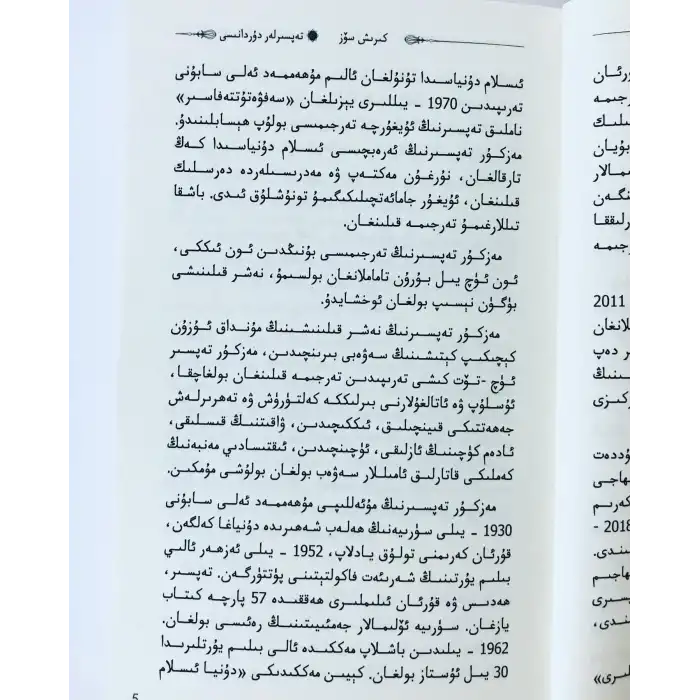 كىرىش سۆز ✹ تەپسىرلەر دۇردانىسى
ئىسلام دۇنياسىدا تونۇلغان ئالىم مۇھەممەد ئەلى سابۇنى
تەرىپىدىن 1970 - يىللىرى يېزىلغان «سەفۋەتۇتتەفاسىر»
ناملىق تەپسىرنىڭ ئۇيغۇرچە تەرجىمىسى بولۇپ ھېسابلىنىدۇ.
مەزكۇر تەپسىرنىڭ ئەرەبچىسى ئىسلام دۇنياسىدا كەڭ
تارقالغان، نۇرغۇن مەكتەپ ۋە مەدرىسىلەردە دەرسلىك
قىلىنغان، ئۇيغۇر جامائەتچىلىكىگىمۇ تونۇشلۇق ئىدى. باشقا
تىللارغىمۇ تەرجىمە قىلىنغان.
مەزكۇر تەپسىرنىڭ تەرجىمىسى بۇنىڭدىن ئون ئىككى،
ئون ئۈچ يىل بۇرۇن تاماملانغان بولسىمۇ، نەشر قىلىنىشى
بۈگۈن نېسىپ بولغان ئوخشايدۇ.
مەزكۇر تەپسىرنىڭ نەشر قىلىنىشىنىڭ مۇنداق ئۇزۇن
كېچىكىپ كېتىشىنىڭ سەۋەبى بىرىنچىدىن، مەزكۇر تەپسىر
ئۈچ -تۆت كىشى تەرىپىدىن تەرجىمە قىلىنغان بولغاچقا،
ئۇسلۇپ ۋە ئاتالغۇلارنى بىرلىككە كەلتۈرۈش ۋە تەھرىرلەش
جەھەتتىكى قىيىنچىلىق، ئىككىنچىدىن، ۋاقىتنىڭ قىسلىقى،
ئادەم كۈچىنىڭ ئازلىقى، ئۈچىنچىدىن، ئىقتىسادىي مەنبەنىڭ
كەملىكى قاتارلىق ئامىللار سەۋەب بولغان بولۇشى مۇمكىن.
مەزكۇر تەپسىرنىڭ مۇئەللىپى مۇھەممەد ئەلى سابۇنى
1930 - يىلى سۈرىيەنىڭ ھەلەب شەھىرىدە دۇنياغا كەلگەن،
قۇرئان كەرىمنى تولۇق يادلاپ، 1952 - يىلى ئەزھەر ئالىي
بىلىم يۇرتىنىڭ شەرىئەت فاكولتېتىنى پۈتتۈرگەن. تەپسىر،
ھەدىس ۋە قۇرئان ئىلىملىرى ھەققىدە 57 پارچە كىتاب
يازغان. سۈرىيە ئۆلىمالار جەمئىيىتىنىڭ رەئىسى بولغان.
1962 - يىلىدىن باشلاپ مەككىدە ئالى بىلىم يۇرتلىرىدا
30 يىل ئۇستاز بولغان. كېيىن مەككىدىكى «دۇنيا ئىسلام
5
2011
2018 -